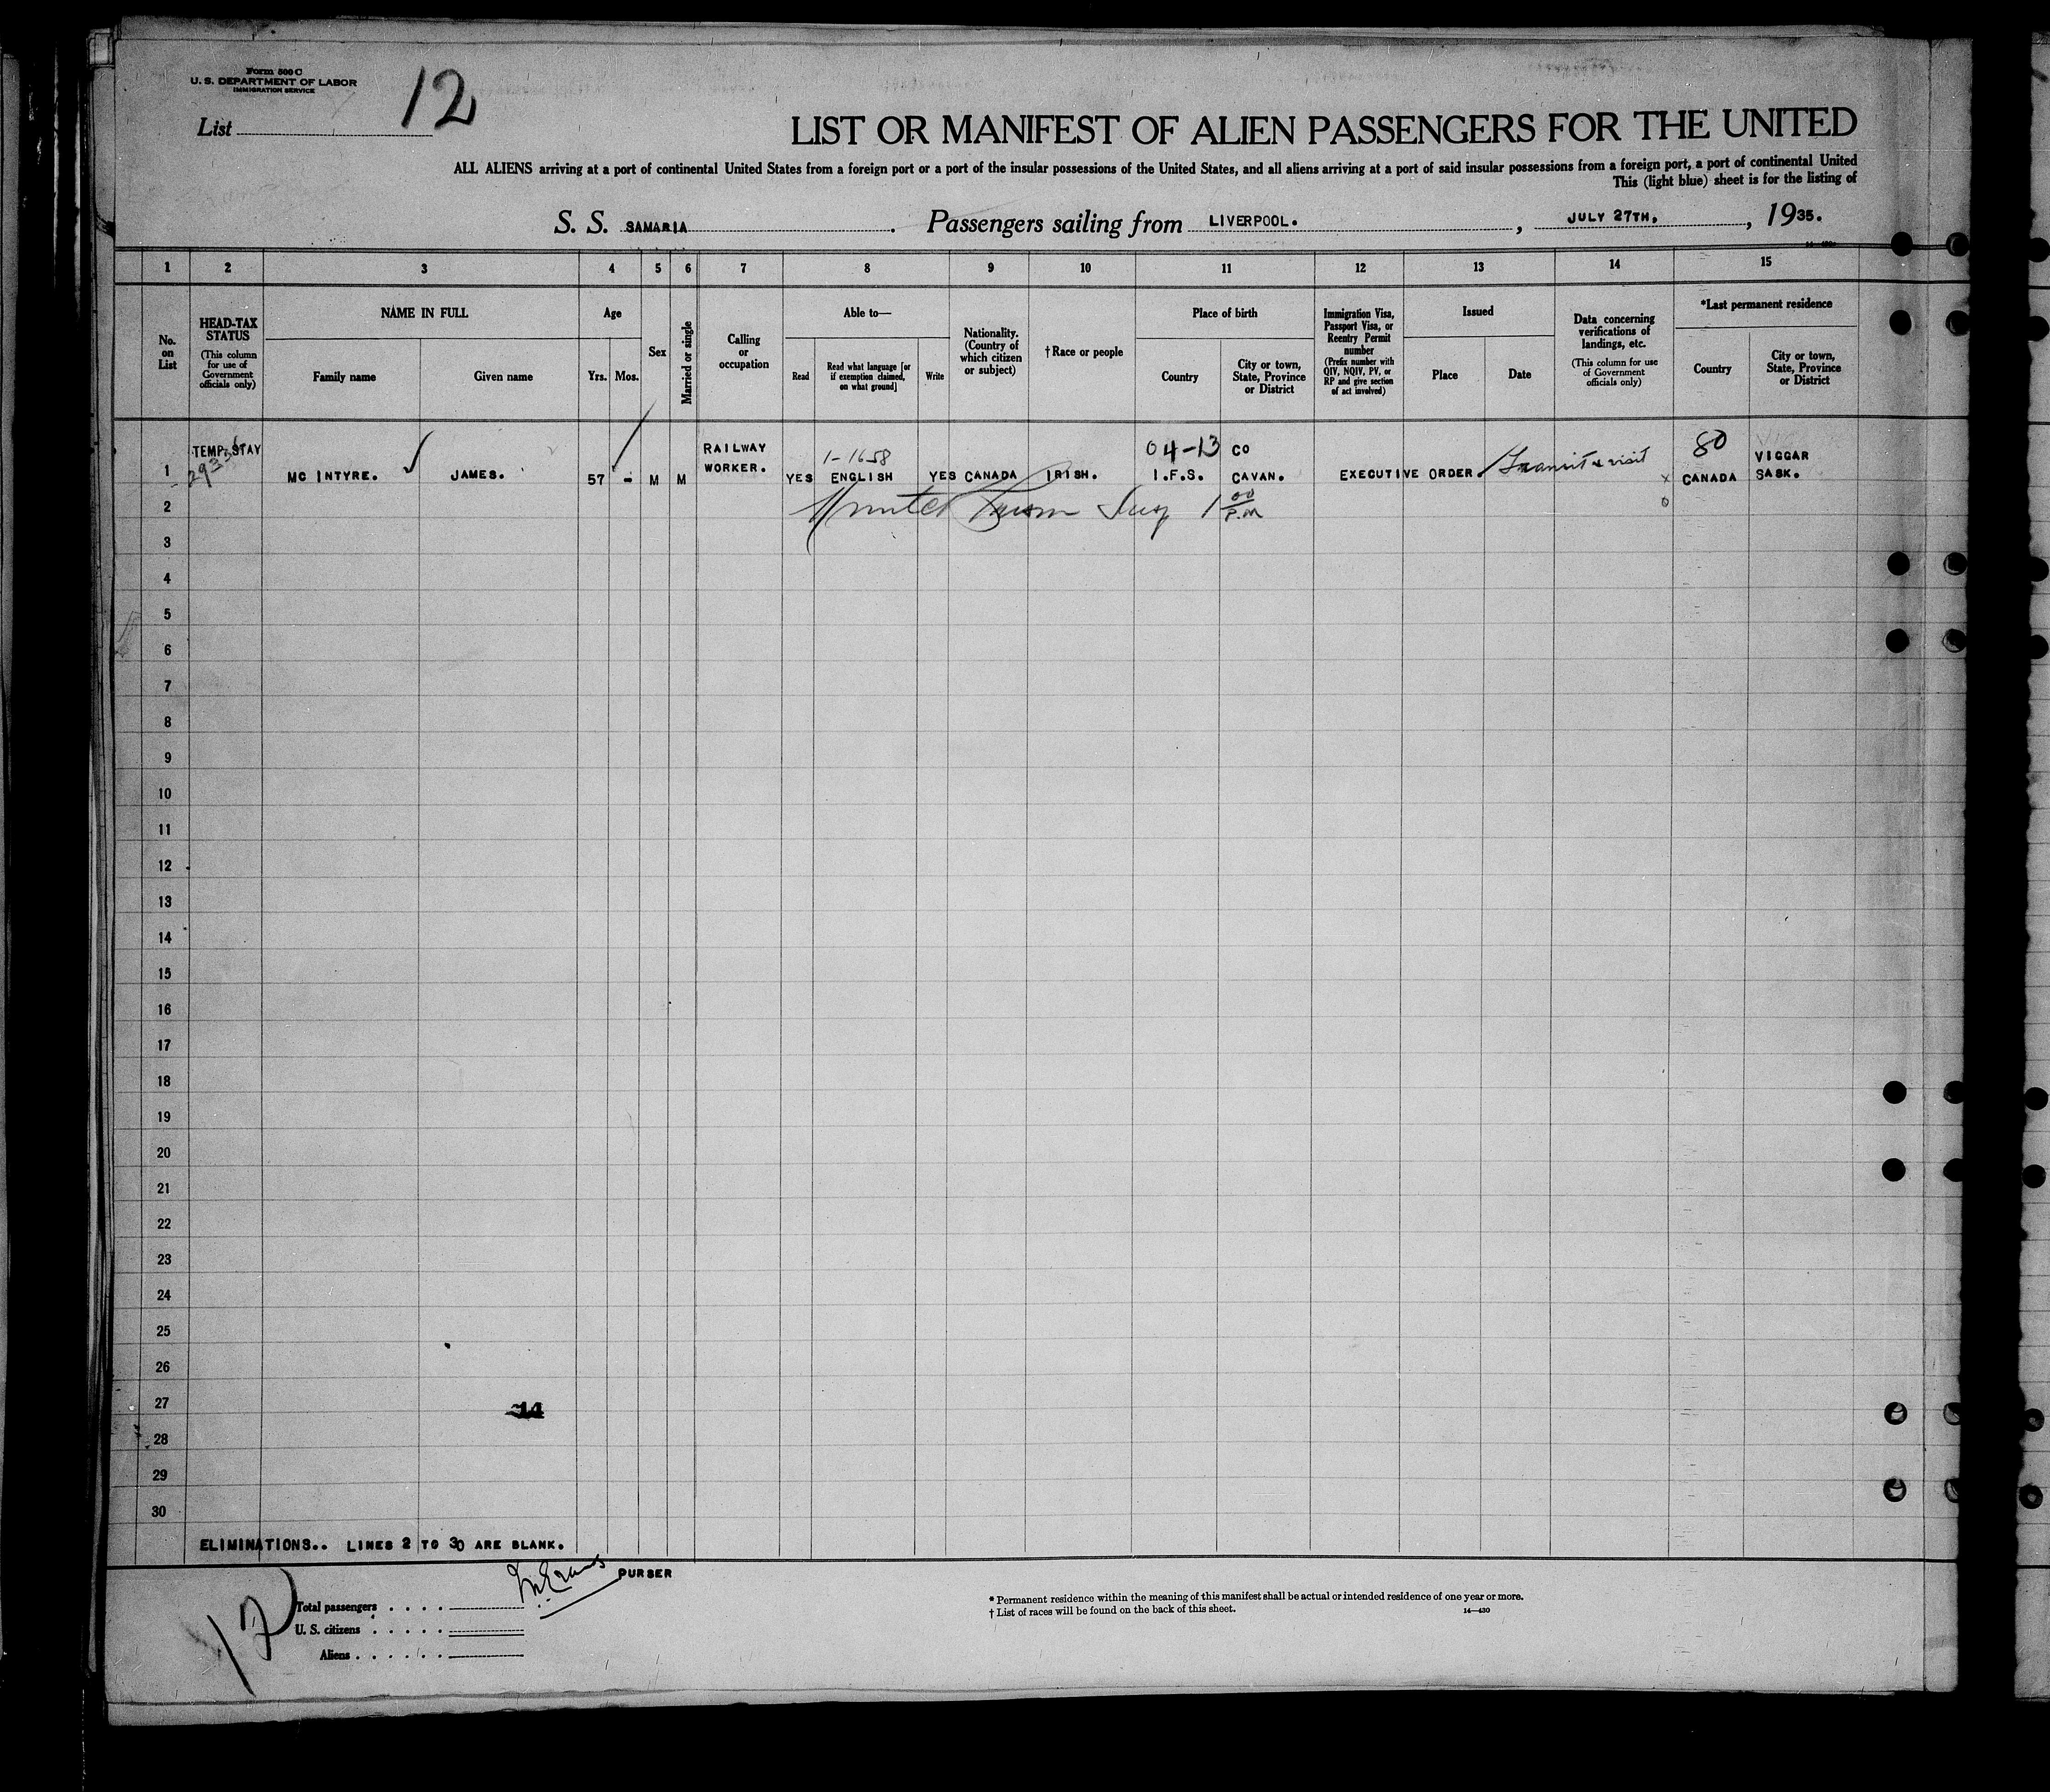 Form 500 C
U. S. DEPARTMENT OF LABOR
IMMIGRATION SERVICE
List 12
LIST OR MANIFEST OF ALIEN PASSENGERS FOR THE UNITED
ALL ALIENS arriving at a port of continental United States from a foreign port or a port of the insular possessions of the United States, and all aliens arriving at a port of said insular possessions from a foreign port, a port of continental United
This (light blue) sheet is for the listing of
S. S. SAMARIA. Passengers sailing from LIVERPOOL., JULY 27TH,, 1935.
1 2 3 4 5 6 7 8 9 10 11 12 13 14 15
No. on List
HEAD-TAX STATUS
(This column for use of Government officials only)
NAME IN FULL
Family name
Given name
Age
Yrs.
Mos.
Sex
Married or single
Calling or occupation
Able to—
Read
Read what language [or if exemption claimed, on what ground]
Write
Nationality. (Country of which citizen or subject)
†Race or people
Place of birth
Country
City or town, State, Province or District
Immigration Visa, Passport Visa, or Reentry Permit number
(Prefix number with QIV, NQIV, PV, or RP and give section of act involved)
Issued
Place
Date
Data concerning verifications of landings, etc.
(This column for use of Government officials only)
*Last permanent residence
Country
City or town, State, Province or District
TEMP. STAY RAILWAY 1-1658 04-13 CO 80 VIGGAR
1 MC INTYRE. JAMES. 57 - M M WORKER. YES ENGLISH YES CANADA IRISH. I.F.S. CAVAN. EXECUTIVE ORDER. Transit & visit CANADA SASK.
2 1 00 P.M
3
4
5
6
7
8
9
10
11
12
13
14
15
16
17
18
19
20
21
22
23
24
25
26
27 14
28
29
30
ELIMINATIONS.. LINES 2 TO 30 ARE BLANK.
PURSER
Total passengers
U. S. citizens
Aliens
12
* Permanent residence within the meaning of this manifest shall be actual or intended residence of one year or more.
† List of races will be found on the back of this sheet. 14—430